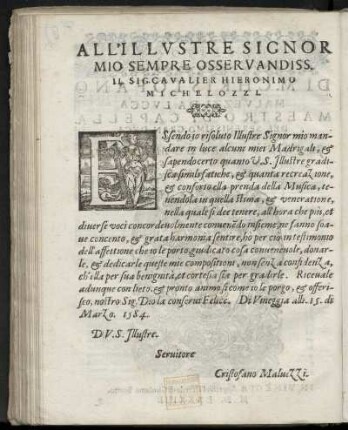 ALL'ILLVSTRE SIGNOR
MIO SEMPRE OSSERVANDISS.
IL SIG. CAVALIER HIERONIMO
MICHELOZZI.
ESsendo io risoluto Illustre Signor mio man-
dare in luce alcuni miei Madrigali, &
sapendo certo quanto V.S. Illustre gradi-
sca simili fatiche, & quanta recreazione,
& conforto ella prenda della Musica, te-
nendola in quella stima, & veneratione,
nella quale si dee tenere, all'hora che piu, et
diuerse voci concordeuolmente conuenẽdo insieme, ne fanno soa-
ue concento, & grata harmonia sentire, ho per ciò in testimonio
dell'affettione che io le porto giudicato cosa conueneuole, donar-
le, & dedicarle queste mie compositioni, non senza confidenza,
ch'ella per sua benignità, et cortesia sia per gradirle. Riceuale
adunque con lieto, & pronto animo si come io le porgo, & offeri-
sco, nostro Sig. Dio la conserui Felice. Di Vineggia alli. 15. di
Marzo. 1584.
D. V. S. Illustre.
Seruitore
Cristofano Maluezzi.